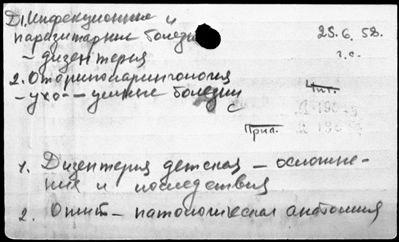 D1. Инфекционные и
паразитарные болезни
– дизентерия
25.6.58.
г.с.
2. Оториноларингология
– ухо – ушные болезни
с
Чит.
Д-196
Прил.
Д 196
1. Дизентерия детская – осложне-
ния и последствия
2. Отит – патологическая анатомия